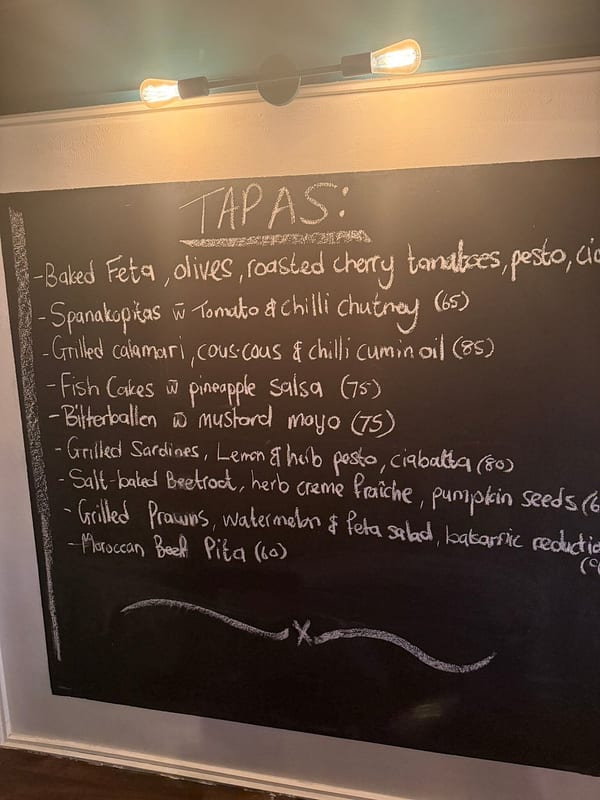 TAPAS:
- Baked Feta, olives, roasted cherry tomatoes, pesto,
- Spanakopitas w̄ Tomato & chilli chutney (65)
- Grilled calamari, cous-cous & chilli cumin oil (85)
- Fish Cakes w̄ pineapple salsa (75)
- Bitterballen w̄ mustard mayo (75)
- Grilled Sardines, Lemon & herb pesto, ciabatta (80)
- Salt-baked Beetroot, herb creme fraîche, pumpkin seeds
- Grilled Prawns, watermelon & feta salad, balsamic
- Moroccan Beef Pita (60)